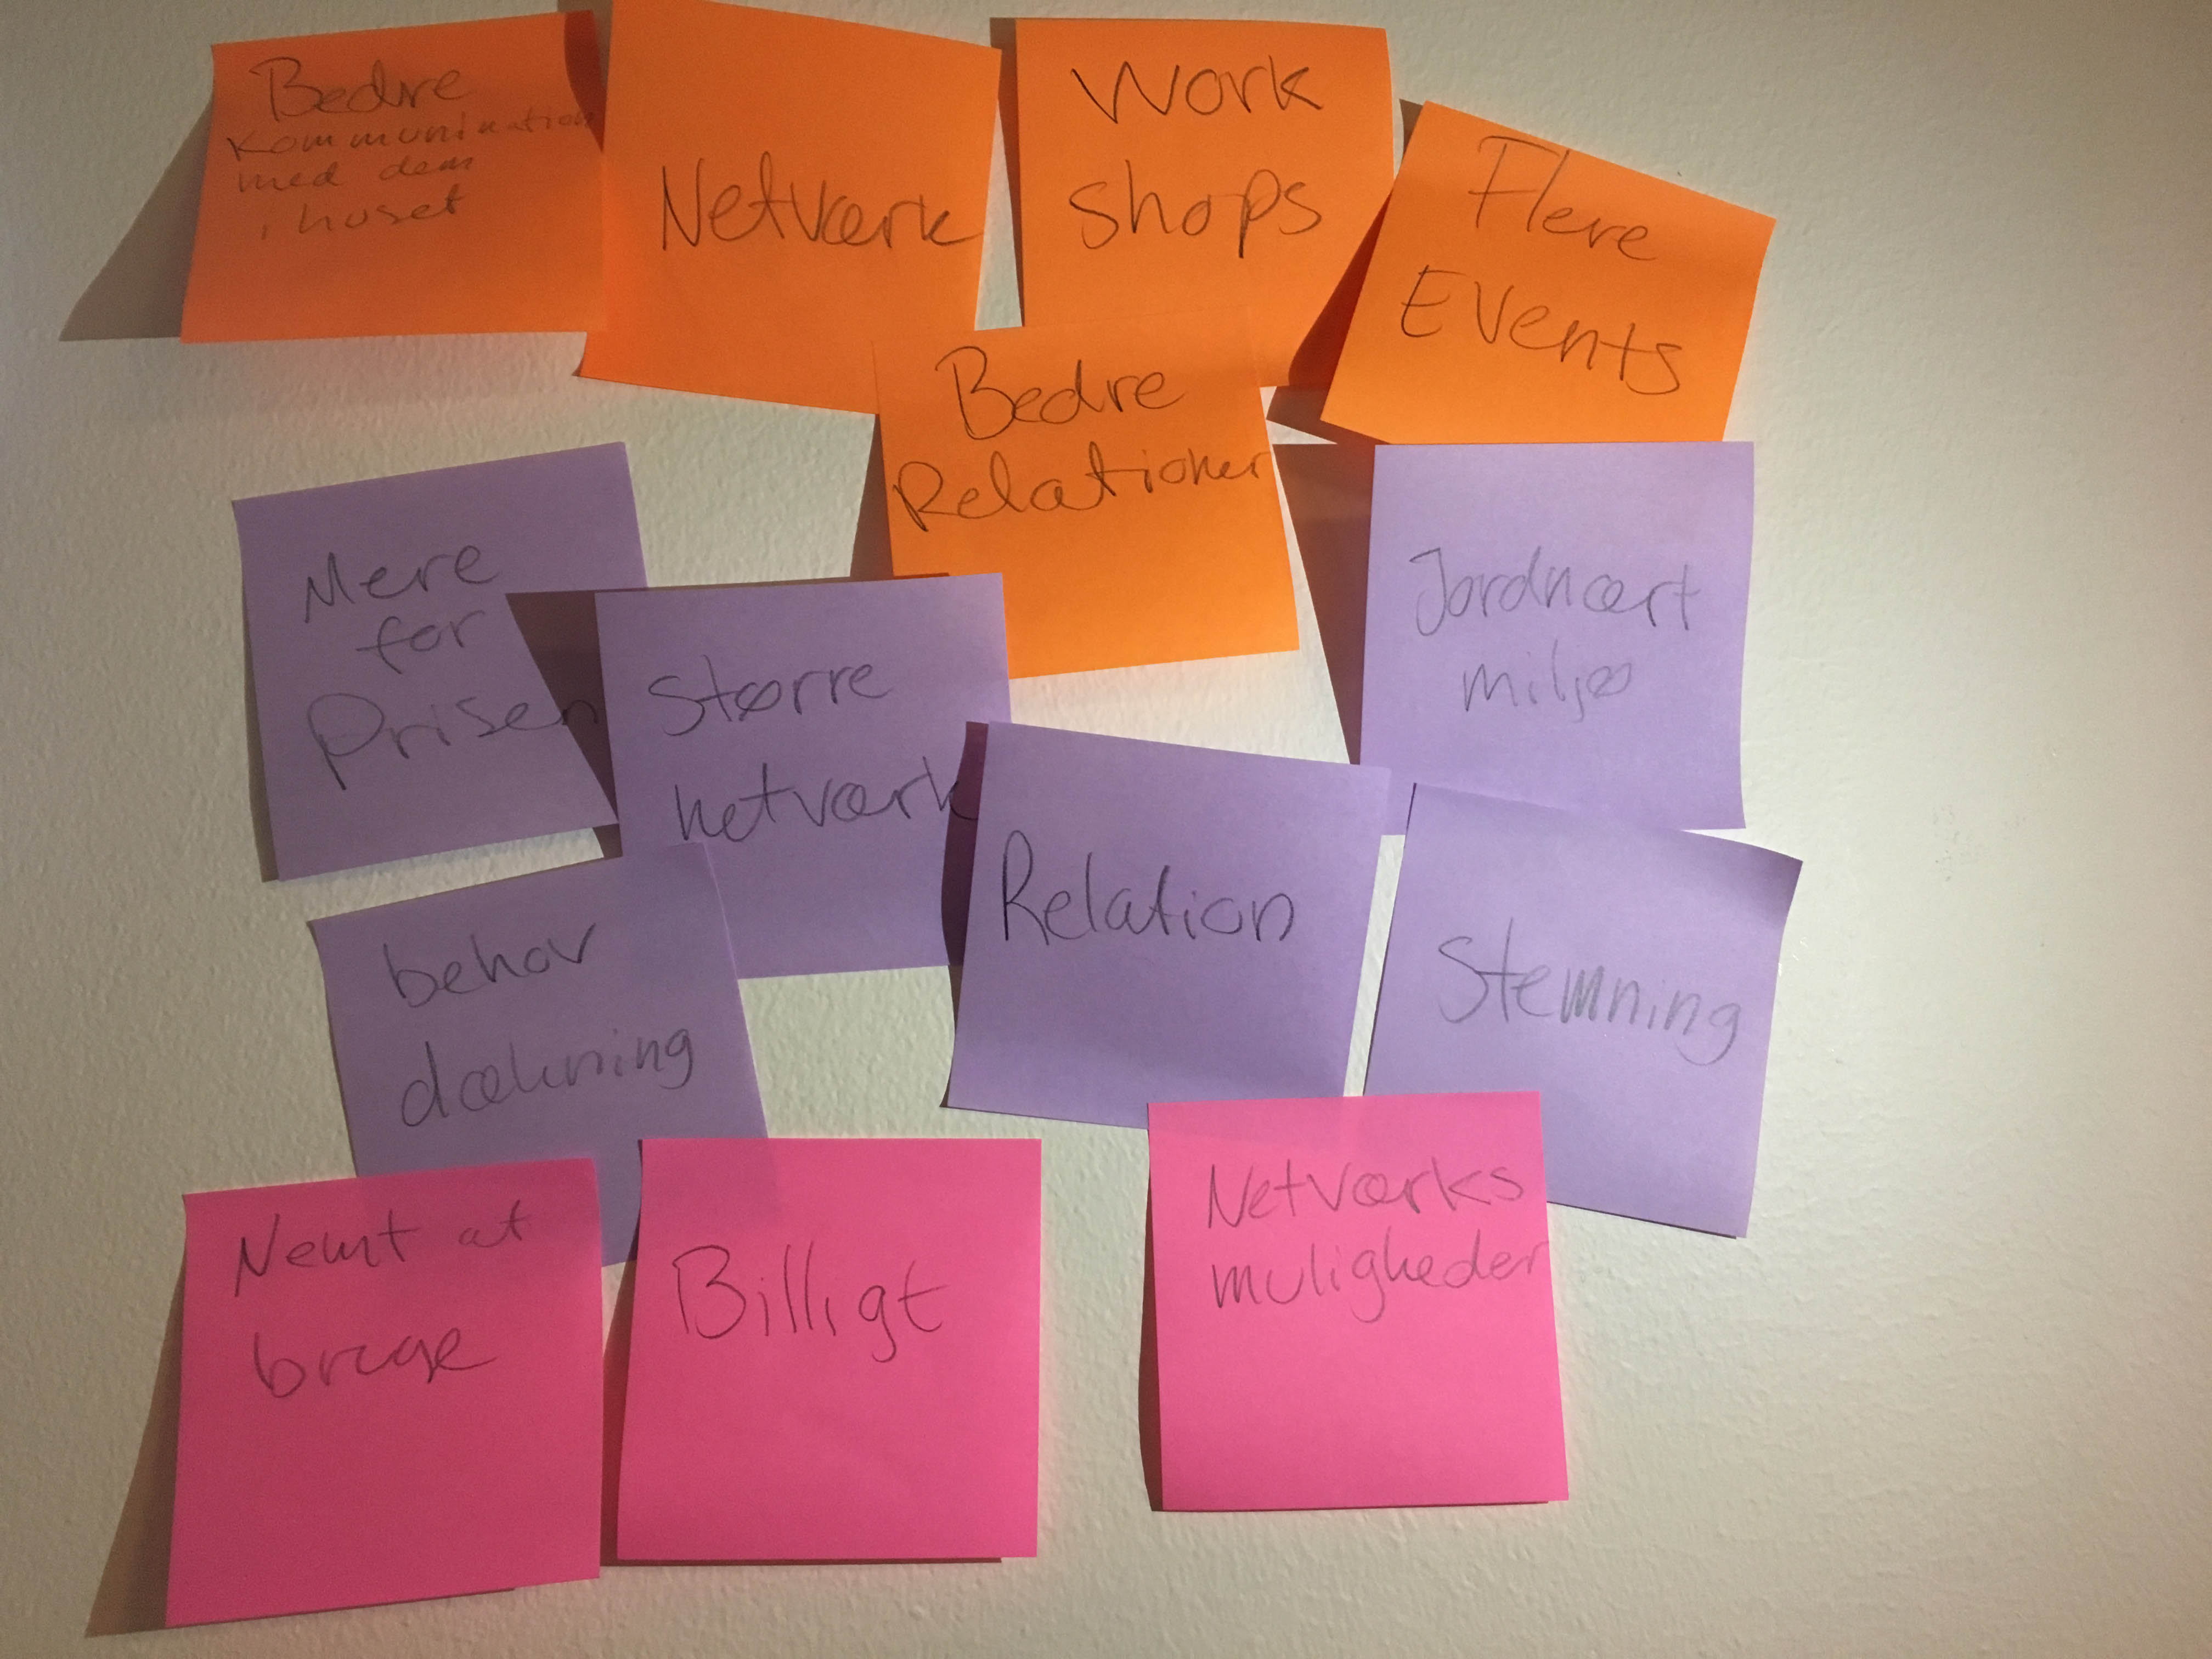 Bedre
Kommunikation
med dem
i huset
Netværk
Work
shops
Flere
Events
Bedre
Relationer
Mere
for
Prisen
Større
netværk
Jordnært
miljø
Relation
Stemning
behov
dækning
Nemt at
bruge
Billigt
Netværks
muligheder